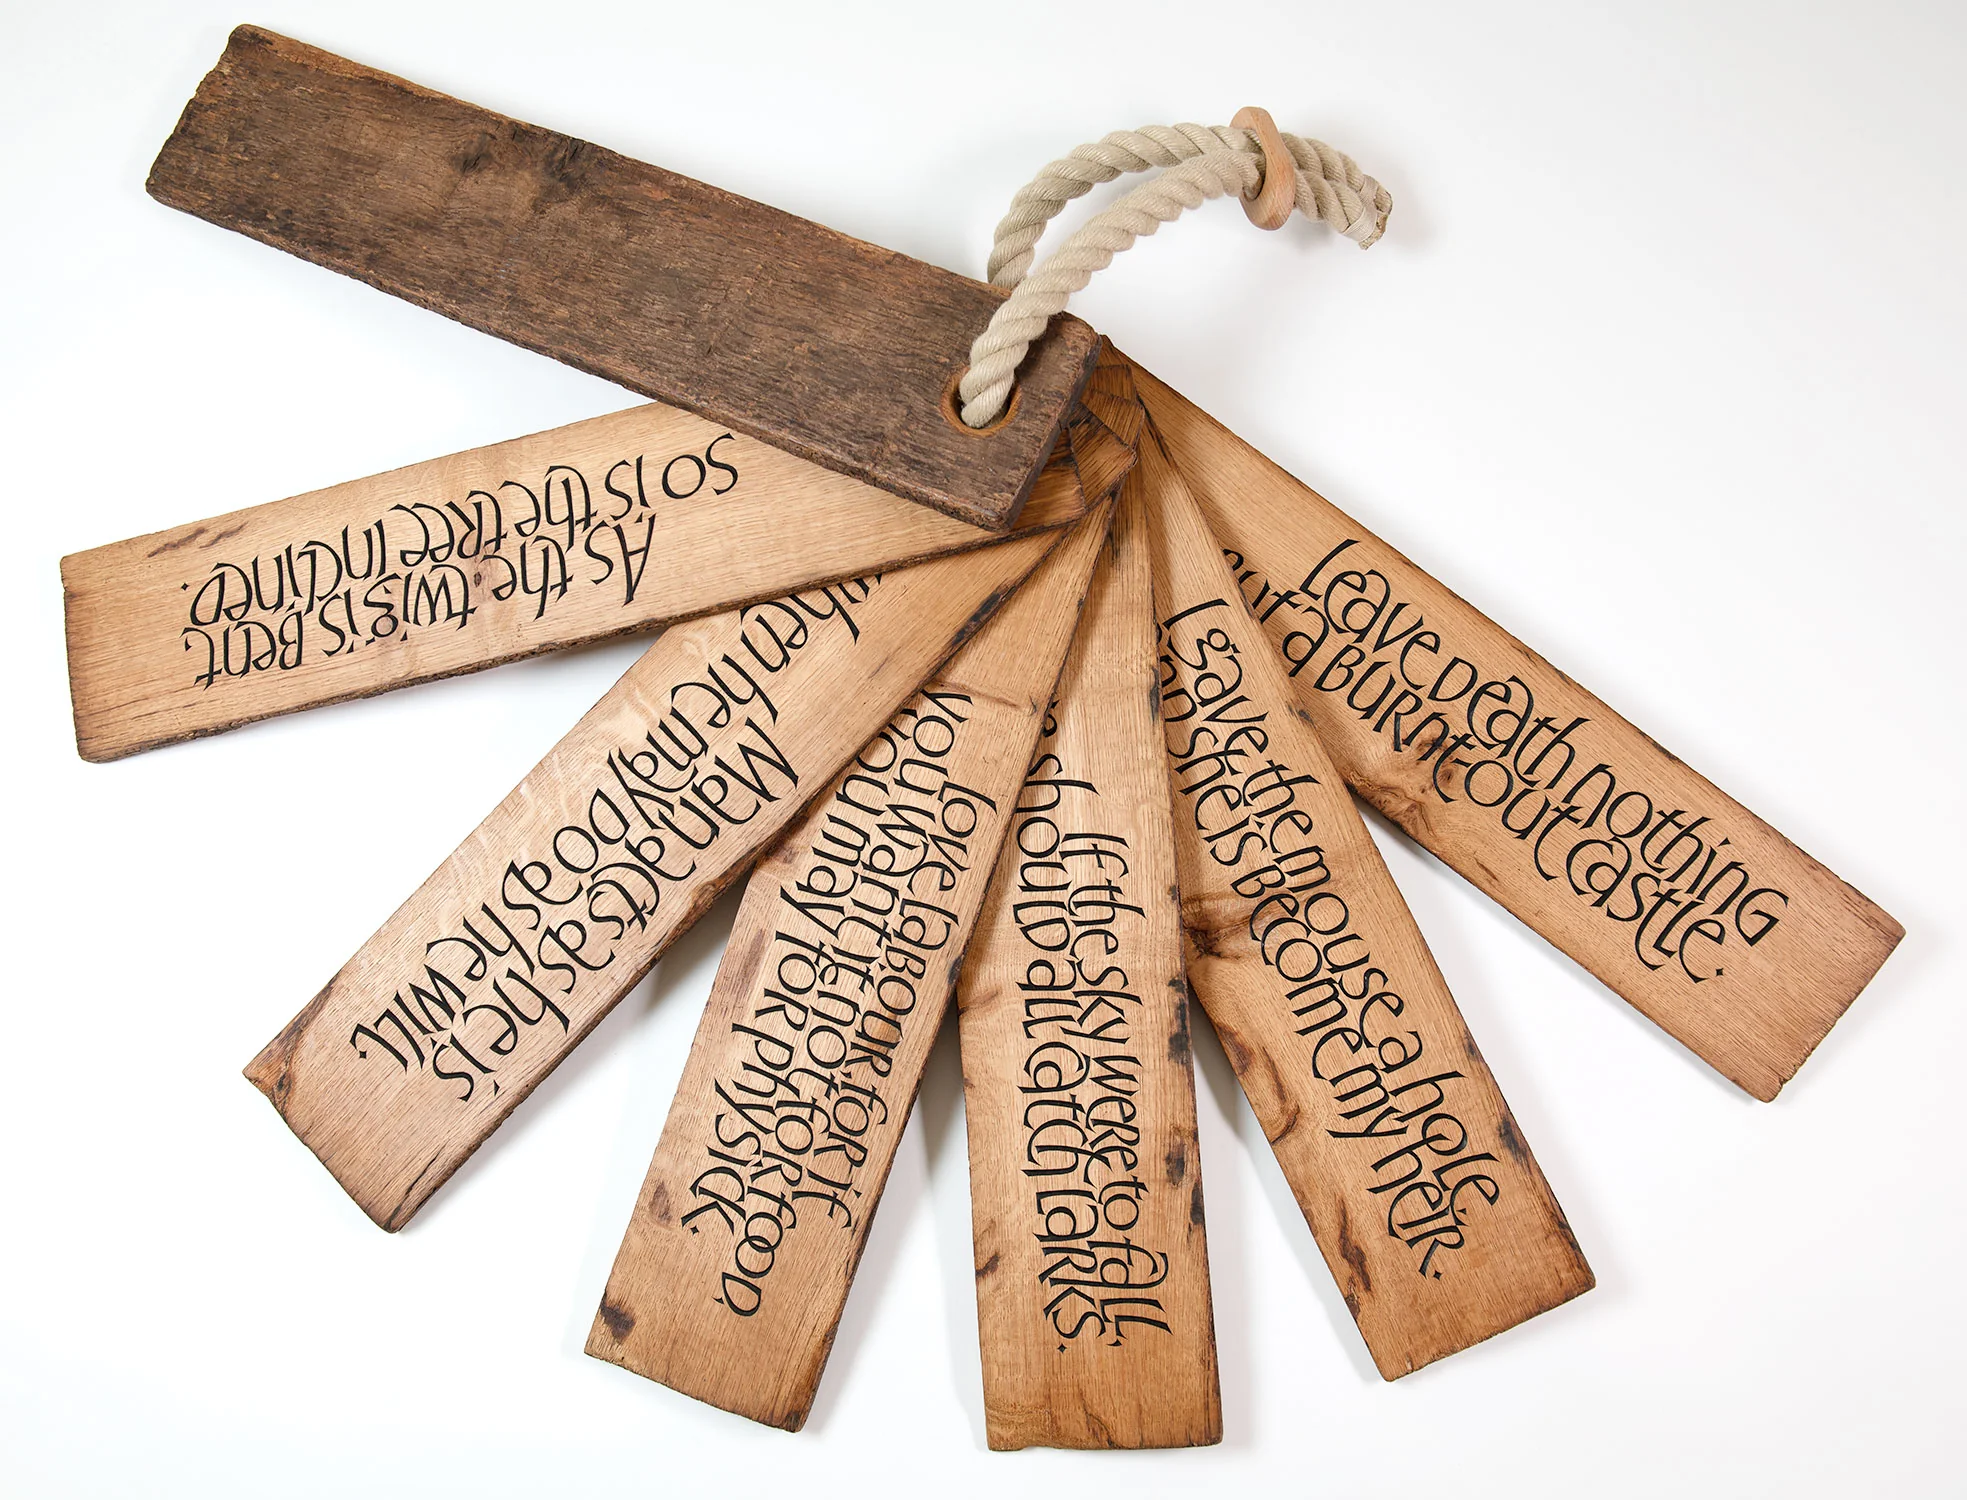 As the twig is Bent,
so is the tree inclined.
Man acts as he is
when he may do as he will.
love laBour, for if
you want it not for food,
you may for physick.
If the sky were to fall,
should all catch larks.
I gave the mouse a hole
and she is Become my heir.
Leave death nothing
but a Burnt-out castle.